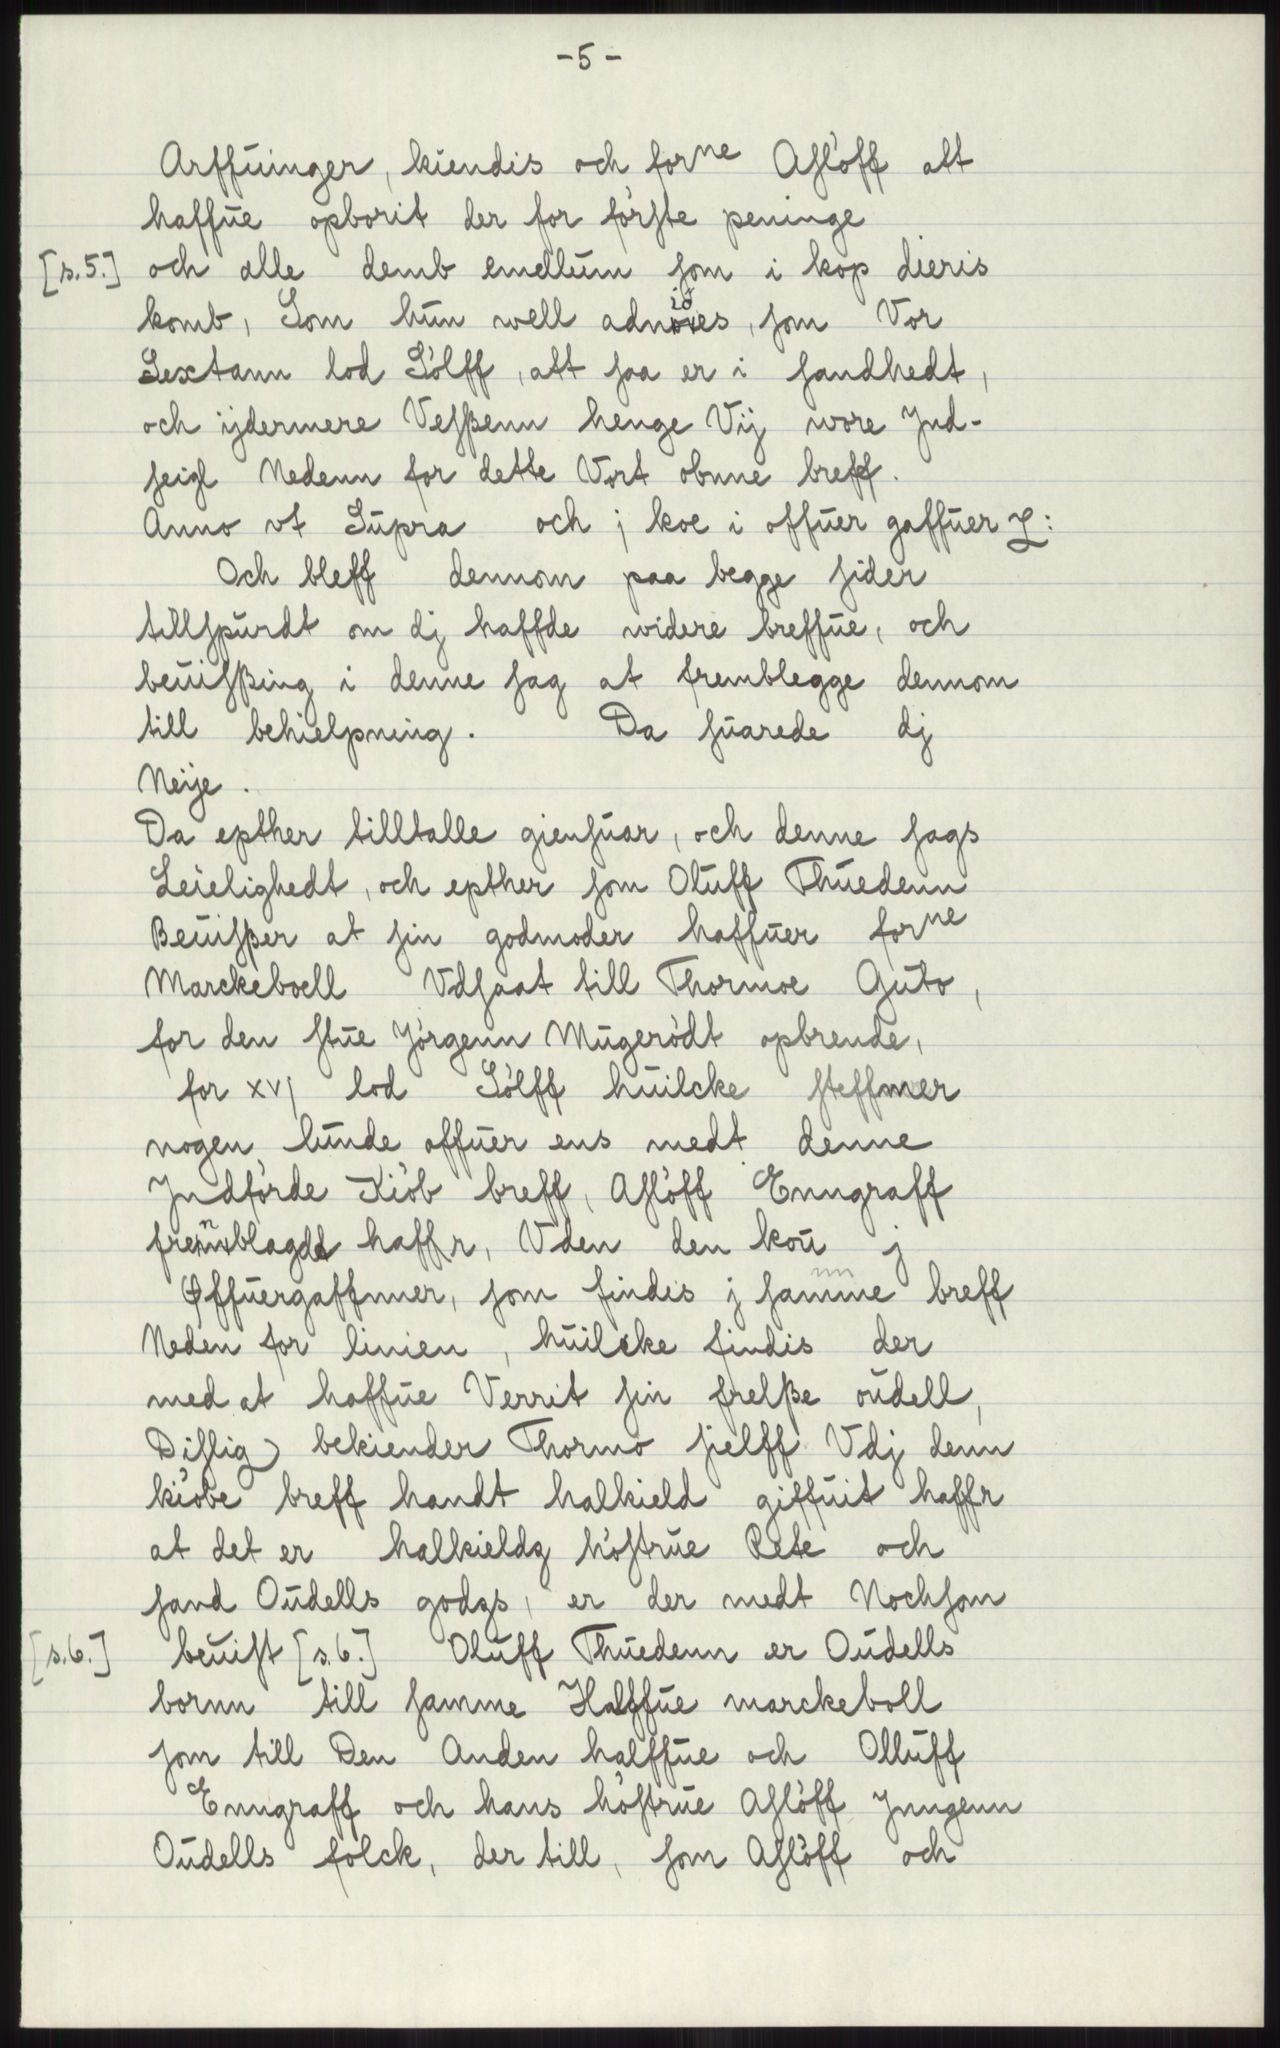 -5-
Arffuinger, kiendis och forne Aslöff att
haffue opborit der for förste peninge
[s.5.] och alle demb emellum som i kop dieris
komb, Som hun well adnöies, som Vor
Sextann lod Sölff, att saa er i sandhedt,
och ijdermere Vesßenn henge Vij wore Jnd-
seigl Nedenn for dette Vort obnne breff.
Anno vt Supra och j koe i offuer gaffuer
Och bleff dennom paa begge sider
tillspurdt om dj haffde widere breffue, och
beuisßing i denne sag at fremblegge dennom
till behielpning. Da suarede dj
Neije.
Da epther tilltalle giensuar, och denne sags
Leielighedt, och epther som Oluff Thuedenn
Beuisßer at sin godmoder haffuer forne
Marckeboell Vdsaat till Thormoe Guto,
for den stue Jörgenn Mugerödt opbrende,
for xvj lod Sölff huilcke steffmer
nogen lunde offuer ens medt denne
Jndförde Kiöb breff, Aslöff Enngraff
fremblagdt haffr, Vden den kou j
Offuergaffnner, som findes j samme breff
Neden for linien, huilcke findis der
med at haffue Verrit sin frelße oudell,
Dislig bekiender Thormo sielff Vdj denn
kiöbe breff handt halkield giffuit haffr
at det er halkieldz höstrue Rete och
sand Oudells godzs, er der medt Nochsom
[s.6.] beuist [s.6.] Oluff Thuedenn er Oudells
bornn till samme Halffue marckeboll
som till Den Anden halffue och Olluff
Enngraff och hans höstrue Aslöff Jnngenn
Oudells folck, der till, som Aslöff och